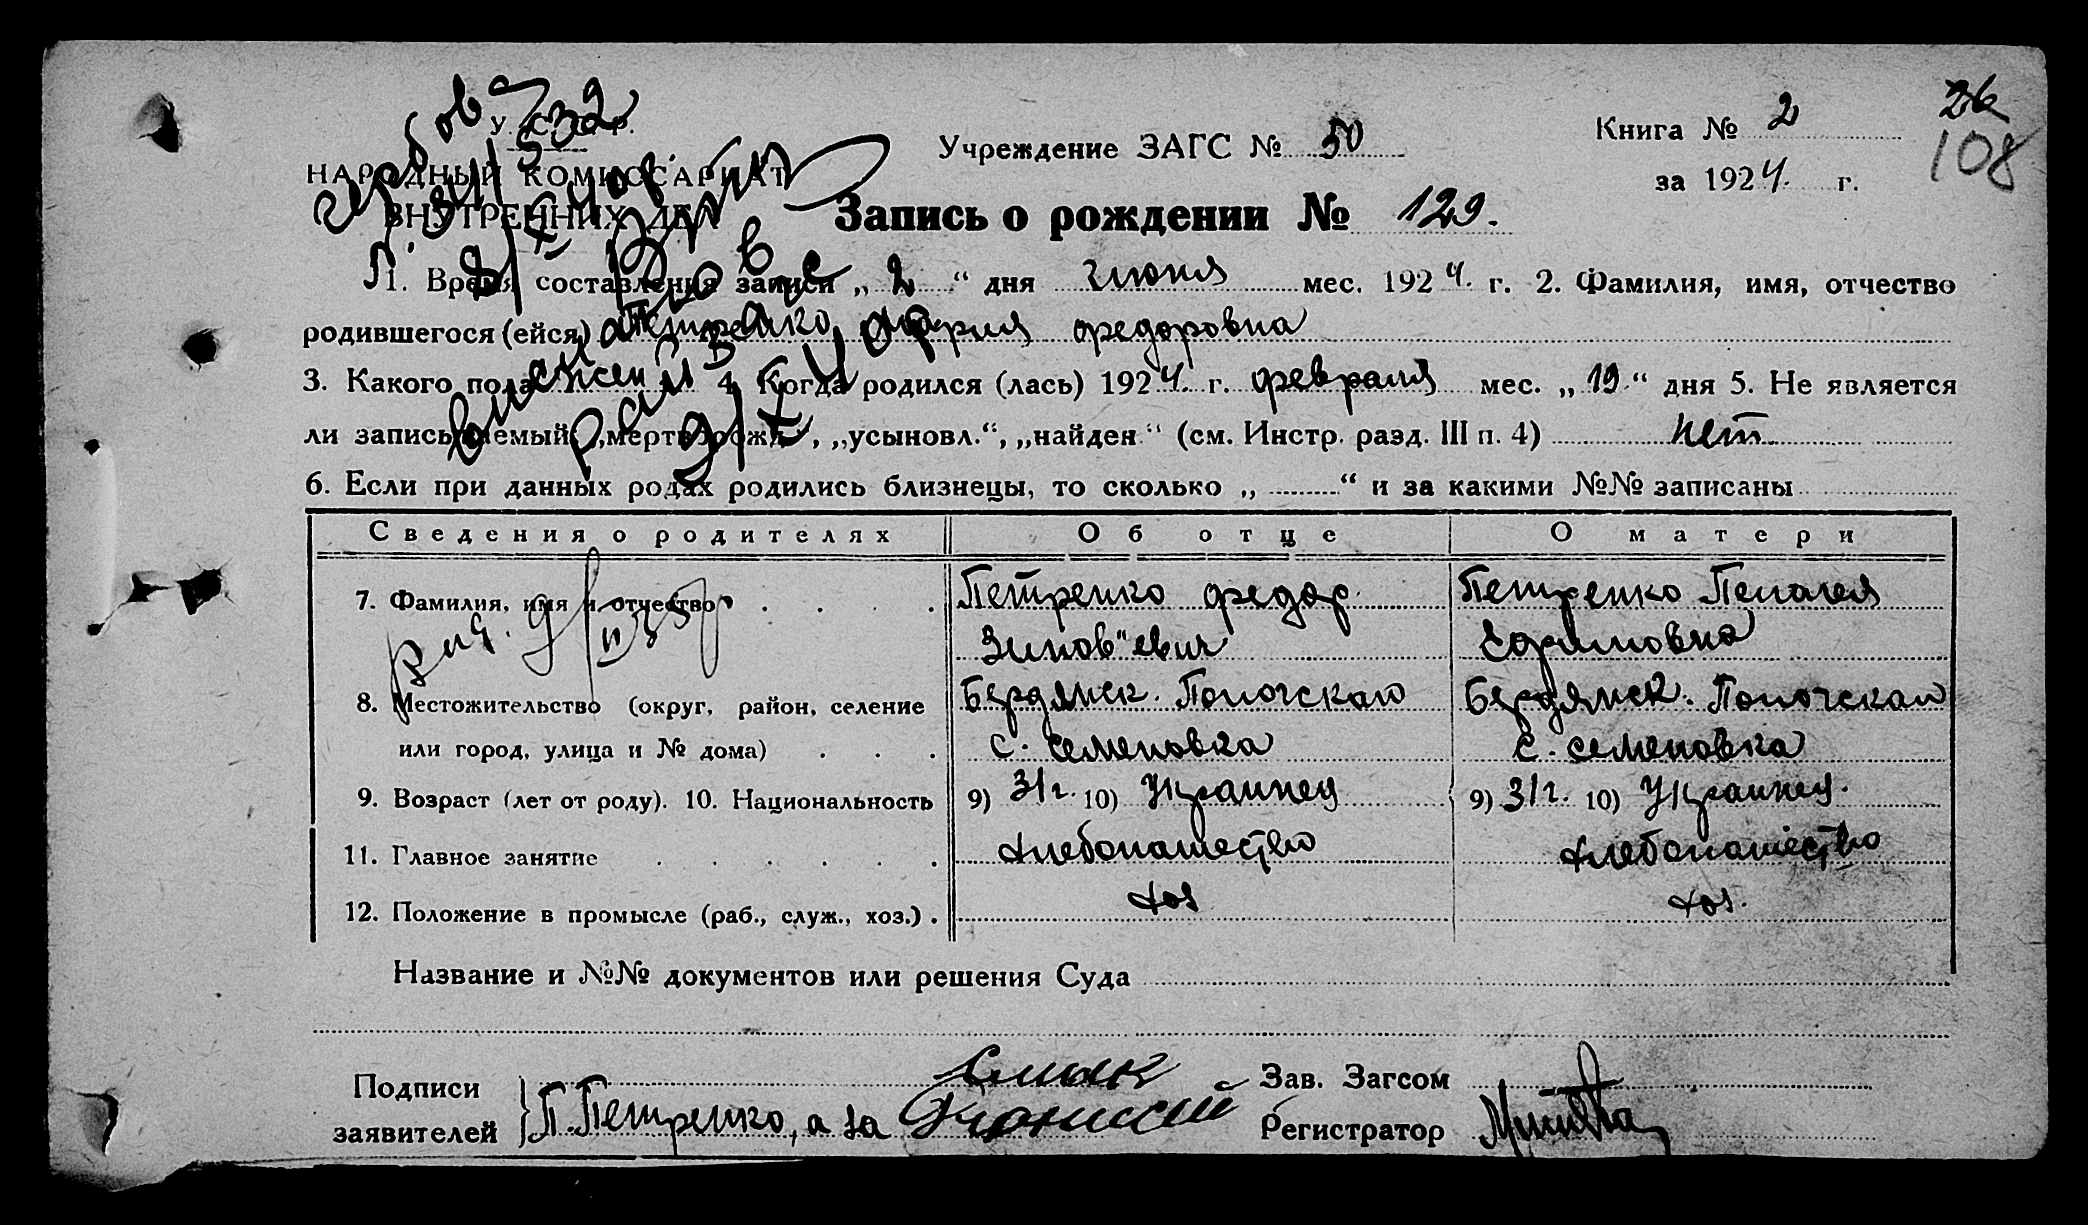 У. С. С. Р.
НАРОДНЫЙ КОМИССАРИАТ
ВНУТРЕННИХ ДЕЛ
Учреждение ЗАГС № 50
Книга № 2
за 1924 г.
26
108
Запись о рождении № 129.
1. Время составления записи „ 2 “ дня июня мес. 1924. г. 2. Фамилия, имя, отчество
родившегося (ейся) Петренко Мария Федоровна
3. Какого пола жен 4. Когда родился (лась) 1924. г. февраля мес. „ 19 “ дня 5. Не является
ли записываемый „мертворожд.“, „усыновл.“, „найден.“ (см. Инстр. разд. III п. 4) нет
6. Если при данных родах родились близнецы, то сколько „ “ и за какими №№ записаны
Сведения о родителях Об отце О матери
7. Фамилия, имя и отчество Петренко Федор Петренко Пелагея
Зинов"евич Ефимовна
8. Местожительство (округ, район, селение Бердянск. Пологскаго Бердянск. Пологскаго
или город, улица и № дома) с. Семеновка с. Семеновка
9. Возраст (лет от роду). 10. Национальность 9) 31 г. 10) Украинец 9) 31 г. 10) Украинец.
11. Главное занятие хлебопашество хлебопашество
12. Положение в промысле (раб., служ., хоз.) хоз хоз.
Название и №№ документов или решения Суда
Подписи Зав. Загсом
заявителей П. Петренко, а за Регистратор